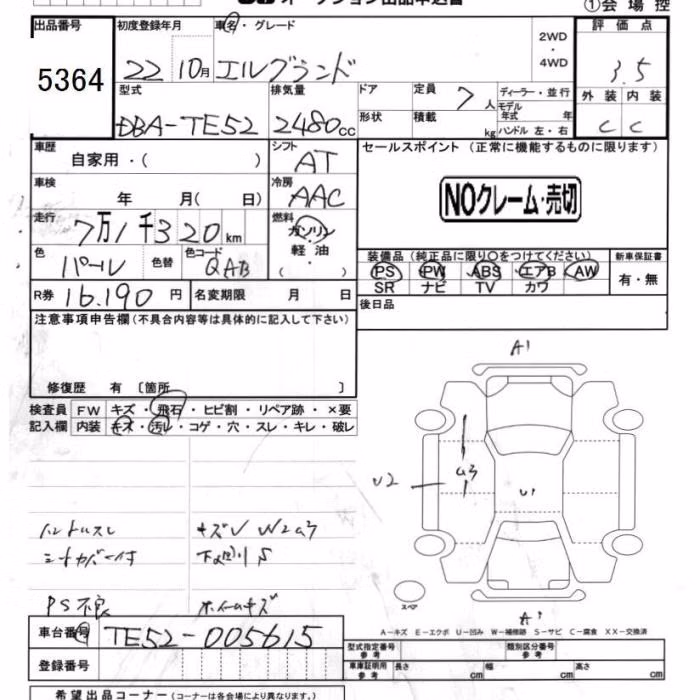 オークション出品申込書
①会場控
出品番号 5364
初度登録年月 22 10月
車名・グレード エルグランド
2WD・4WD
評価点 3.5
外装 C 内装 C
型式 DBA-TE52
排気量 2480cc
ドア
形状
定員 7人
積載 kg
ディーラー・並行
モデル年式 年
ハンドル 左・右
車歴 自家用・( )
シフト AT
セールスポイント (正常に機能するものに限ります)
NOクレーム・売切
車検 年 月( 日)
冷房 AAC
走行 7万1千320km
燃料 ガソリン 軽油 ( )
色 パール 色替
色コード QAB
装備品 (純正品に限り○をつけてください)
PS PW ABS エアB AW
SR ナビ TV カワ
新車保証書 有・無
R券 16.190円
名変期限 月 日
後日品
注意事項申告欄 (不具合内容等は具体的に記入して下さい)
修復歴 有 〔箇所 〕
検査員記入欄
FW キズ・飛石・ヒビ割・リペア跡・×要
内装 キズ・汚レ・コゲ・穴・スレ・キレ・破レ
A1
U2
U3
U1
A1
スペア
ハンドルスレ
シートカバー付
PS不良
キズV W2U3
下廻りS
ホイールキズ
A-キズ E-エクボ U-凹み W-補修跡 S-サビ C-腐食 XX-交換済
車台番号 TE52-005615
登録番号
型式指定番号 参考
類別区分番号 参考
車庫証明用 参考 長さ cm 幅 cm 高さ cm
希望出品コーナー (コーナーは各会場により異なります。)